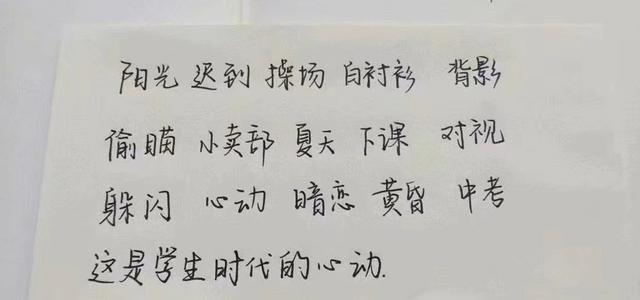 阳光 迟到 操场 白衬衫 背影
偷瞄 小卖部 夏天 下课 对视
躲闪 心动 暗恋 黄昏 中考
这是学生时代的心动.